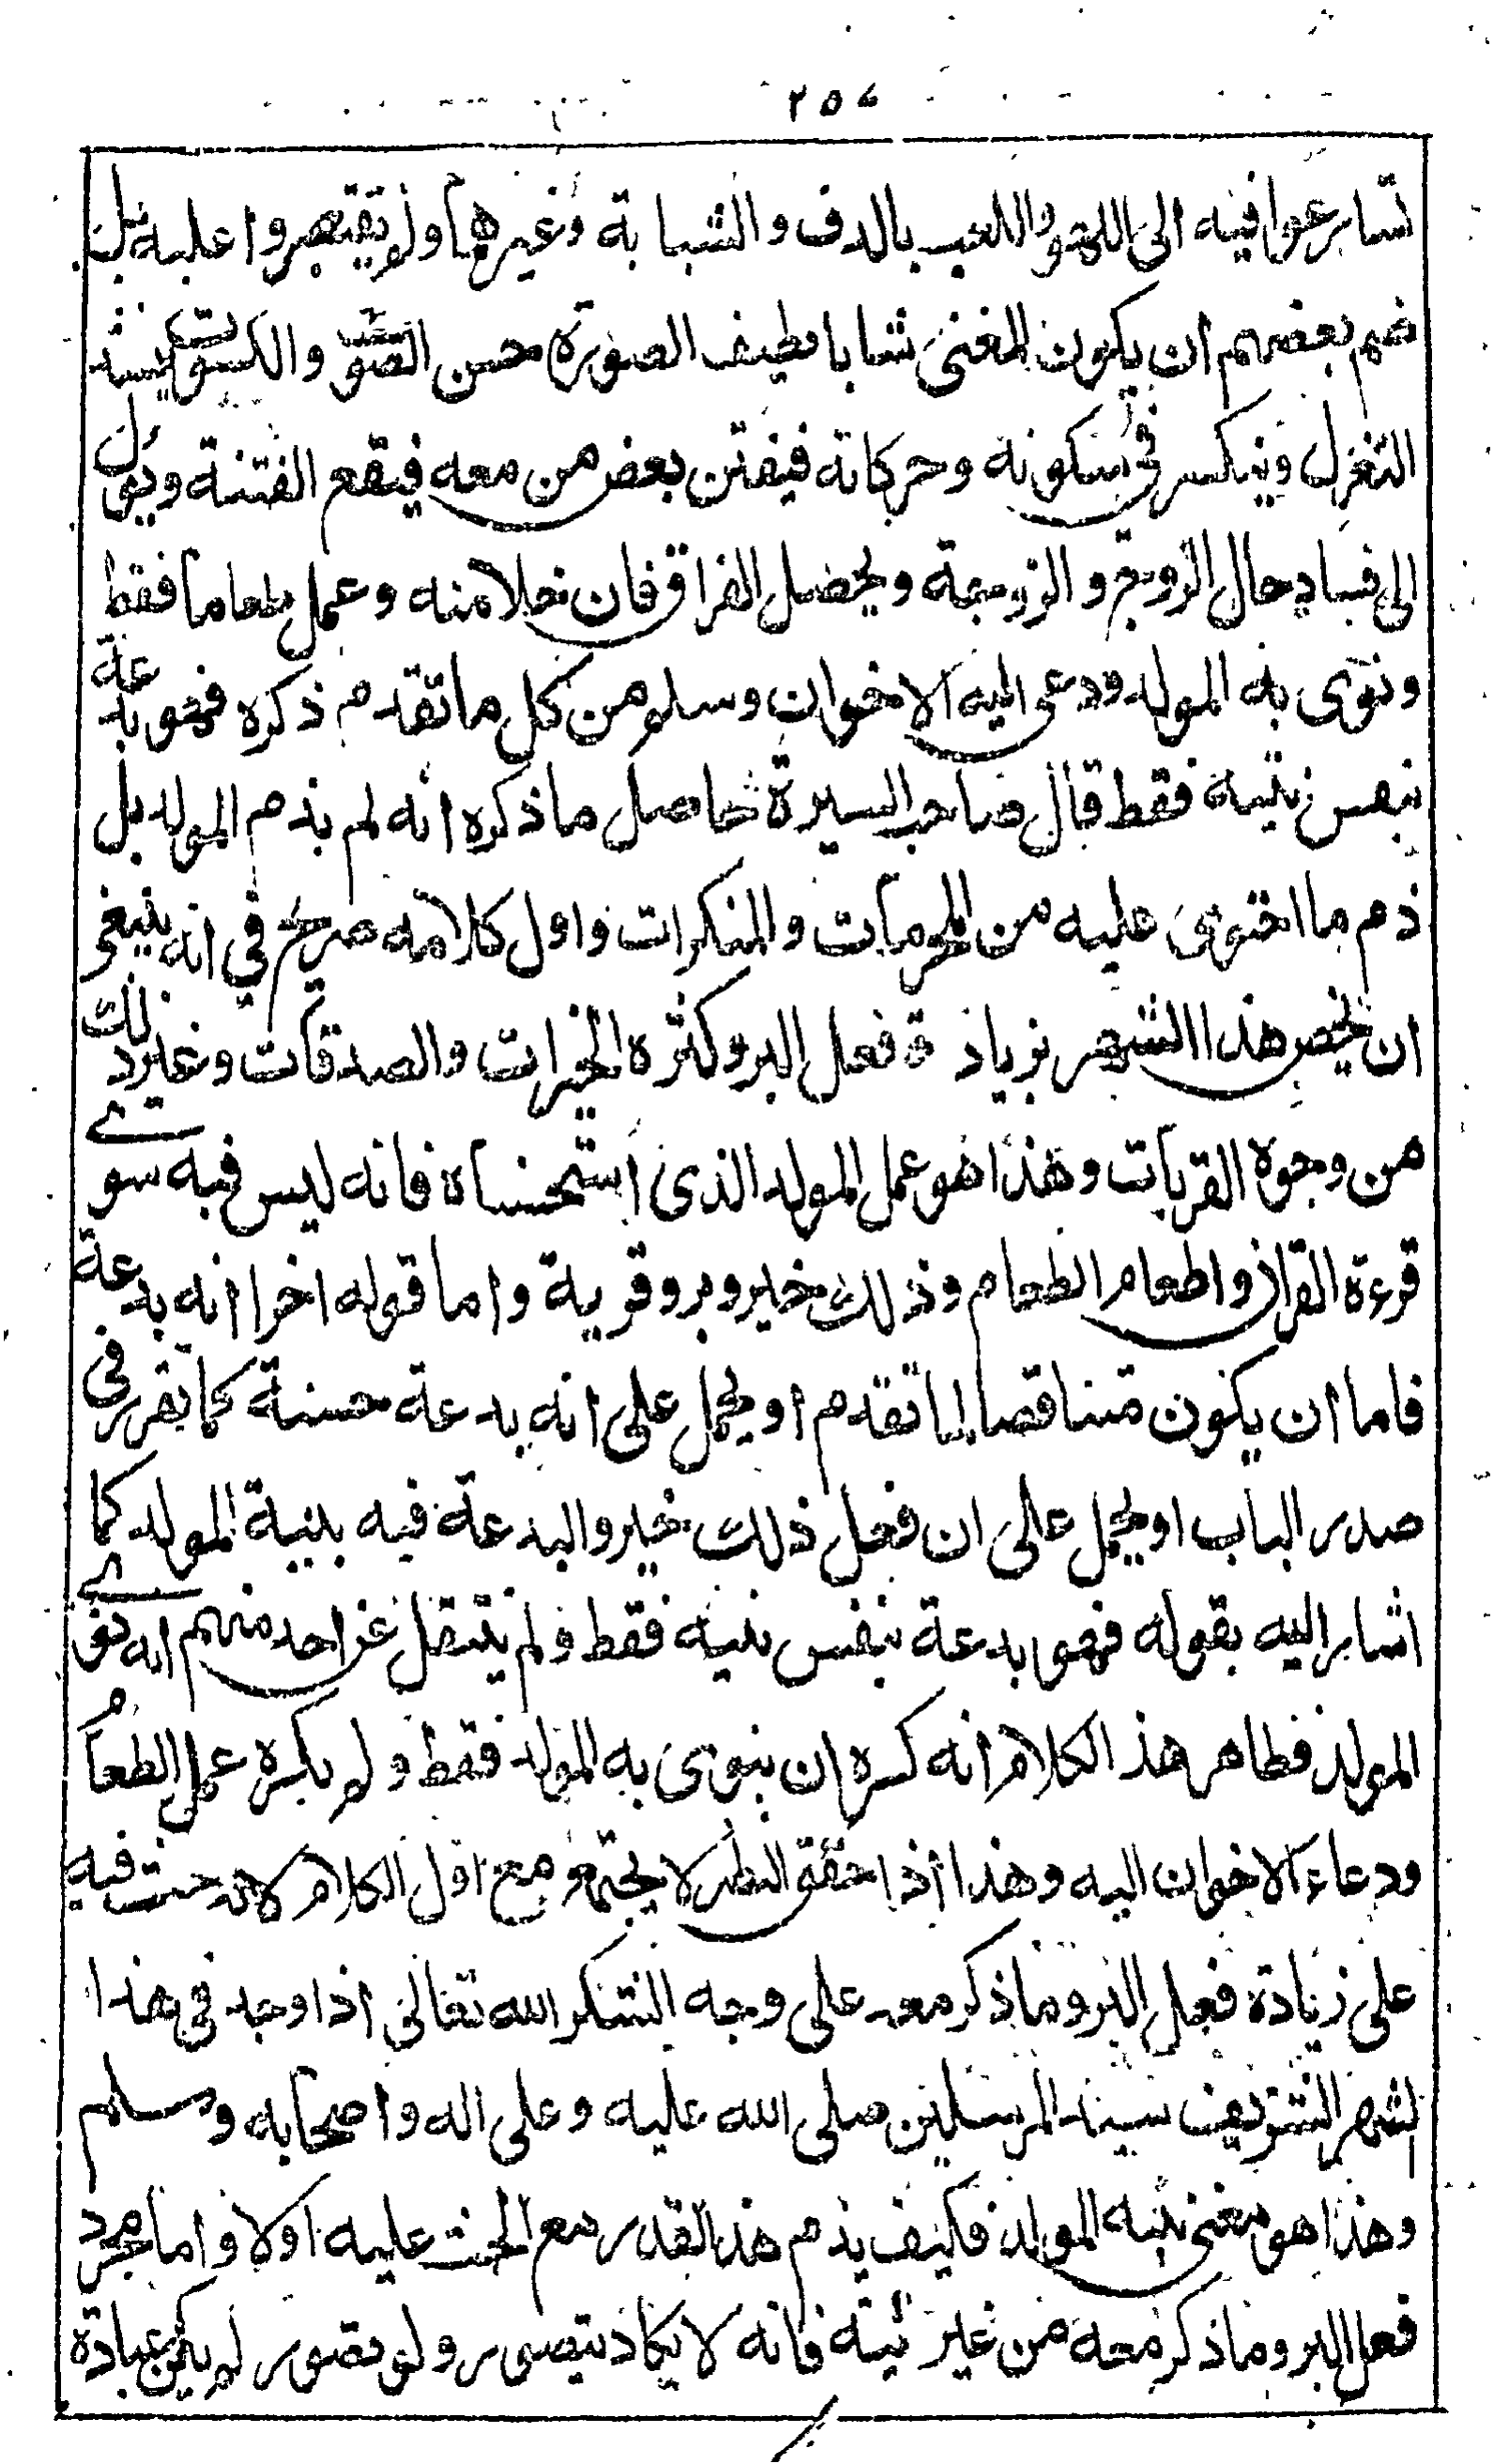 ٢٥٤
تسارعوا فيه الى اللهو واللعب بالدف والشبابة وغيرهما ولم يقتصروا عليه بل
ضم بعضهم ان يكون المغنى شابا نظيف الصورة حسن الصوت والكسوة ينشد
التغزل وينكسر فى سكونه وحركاته فيفتن بعض من معه فيقع الفتنة ويؤل
الى فساد حال الزوج والزوجة ويحصل الفراق فان خلا منه وعمل طعاما فقط
ونوى به المولد ودعى اليه الاخوان وسلم من كل ما تقدم ذكره فهو بدعة
بنفس نيته فقط قال صاحب السيرة حاصل ما ذكره انه لم يذم المولد بل
ذم ما احتوى عليه من المحرمات والمنكرات واول كلامه صريح فى انه ينبغى
ان يخص هذا الشهر بزيادة فعل البر وكثرة الخيرات والصدقات وغير ذلك
من وجوه القربات وهذا هو عمل المولد الذى استحسناه فانه ليس فيه سوى
قرءة القران واطعام الطعام وذلك خير وبر وقربة واما قوله اخرا انه بدعة
فاما ان يكون متناقضا لما تقدم او يحمل على انه بدعة حسنة كما تقرر فى
صدر الباب او يحمل على ان فعل ذلك خير والبدعة فيه بنية المولد كما
اشار اليه بقوله فهو بدعة بنفس نيته فقط ولم ينتقل عن احد منهم انه نوى
المولد فظاهر هذ الكلام انه كره ان ينوى به المولد فقط ولم يكره عمل الطعام
ودعاء الاخوان اليه وهذا اذا حقق النظر لا يجتمع مع اول الكلام لانه حث فيه
على زيادة فعل البر وما ذكر معه على وجه الشكر الله تعالى اذا وجد فى هذا
لشهر الشريف سيد المرسلين صلى الله عليه وعلى اله واصحابه وسلم
وهذا هو معنى نية المولد فكيف يذم هذ القدر مع الحث عليه اولا واما مجرد
فعل البر وما ذكر معه من غير نية فانه لا يكاد يتصور ولو تصور لم يكن عبادة